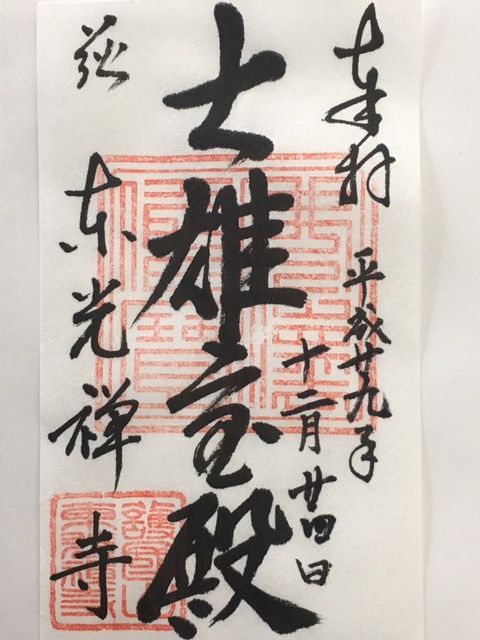 奉拝
平成廿九年
十二月廿四日
大雄宝殿
萩
東光禅寺